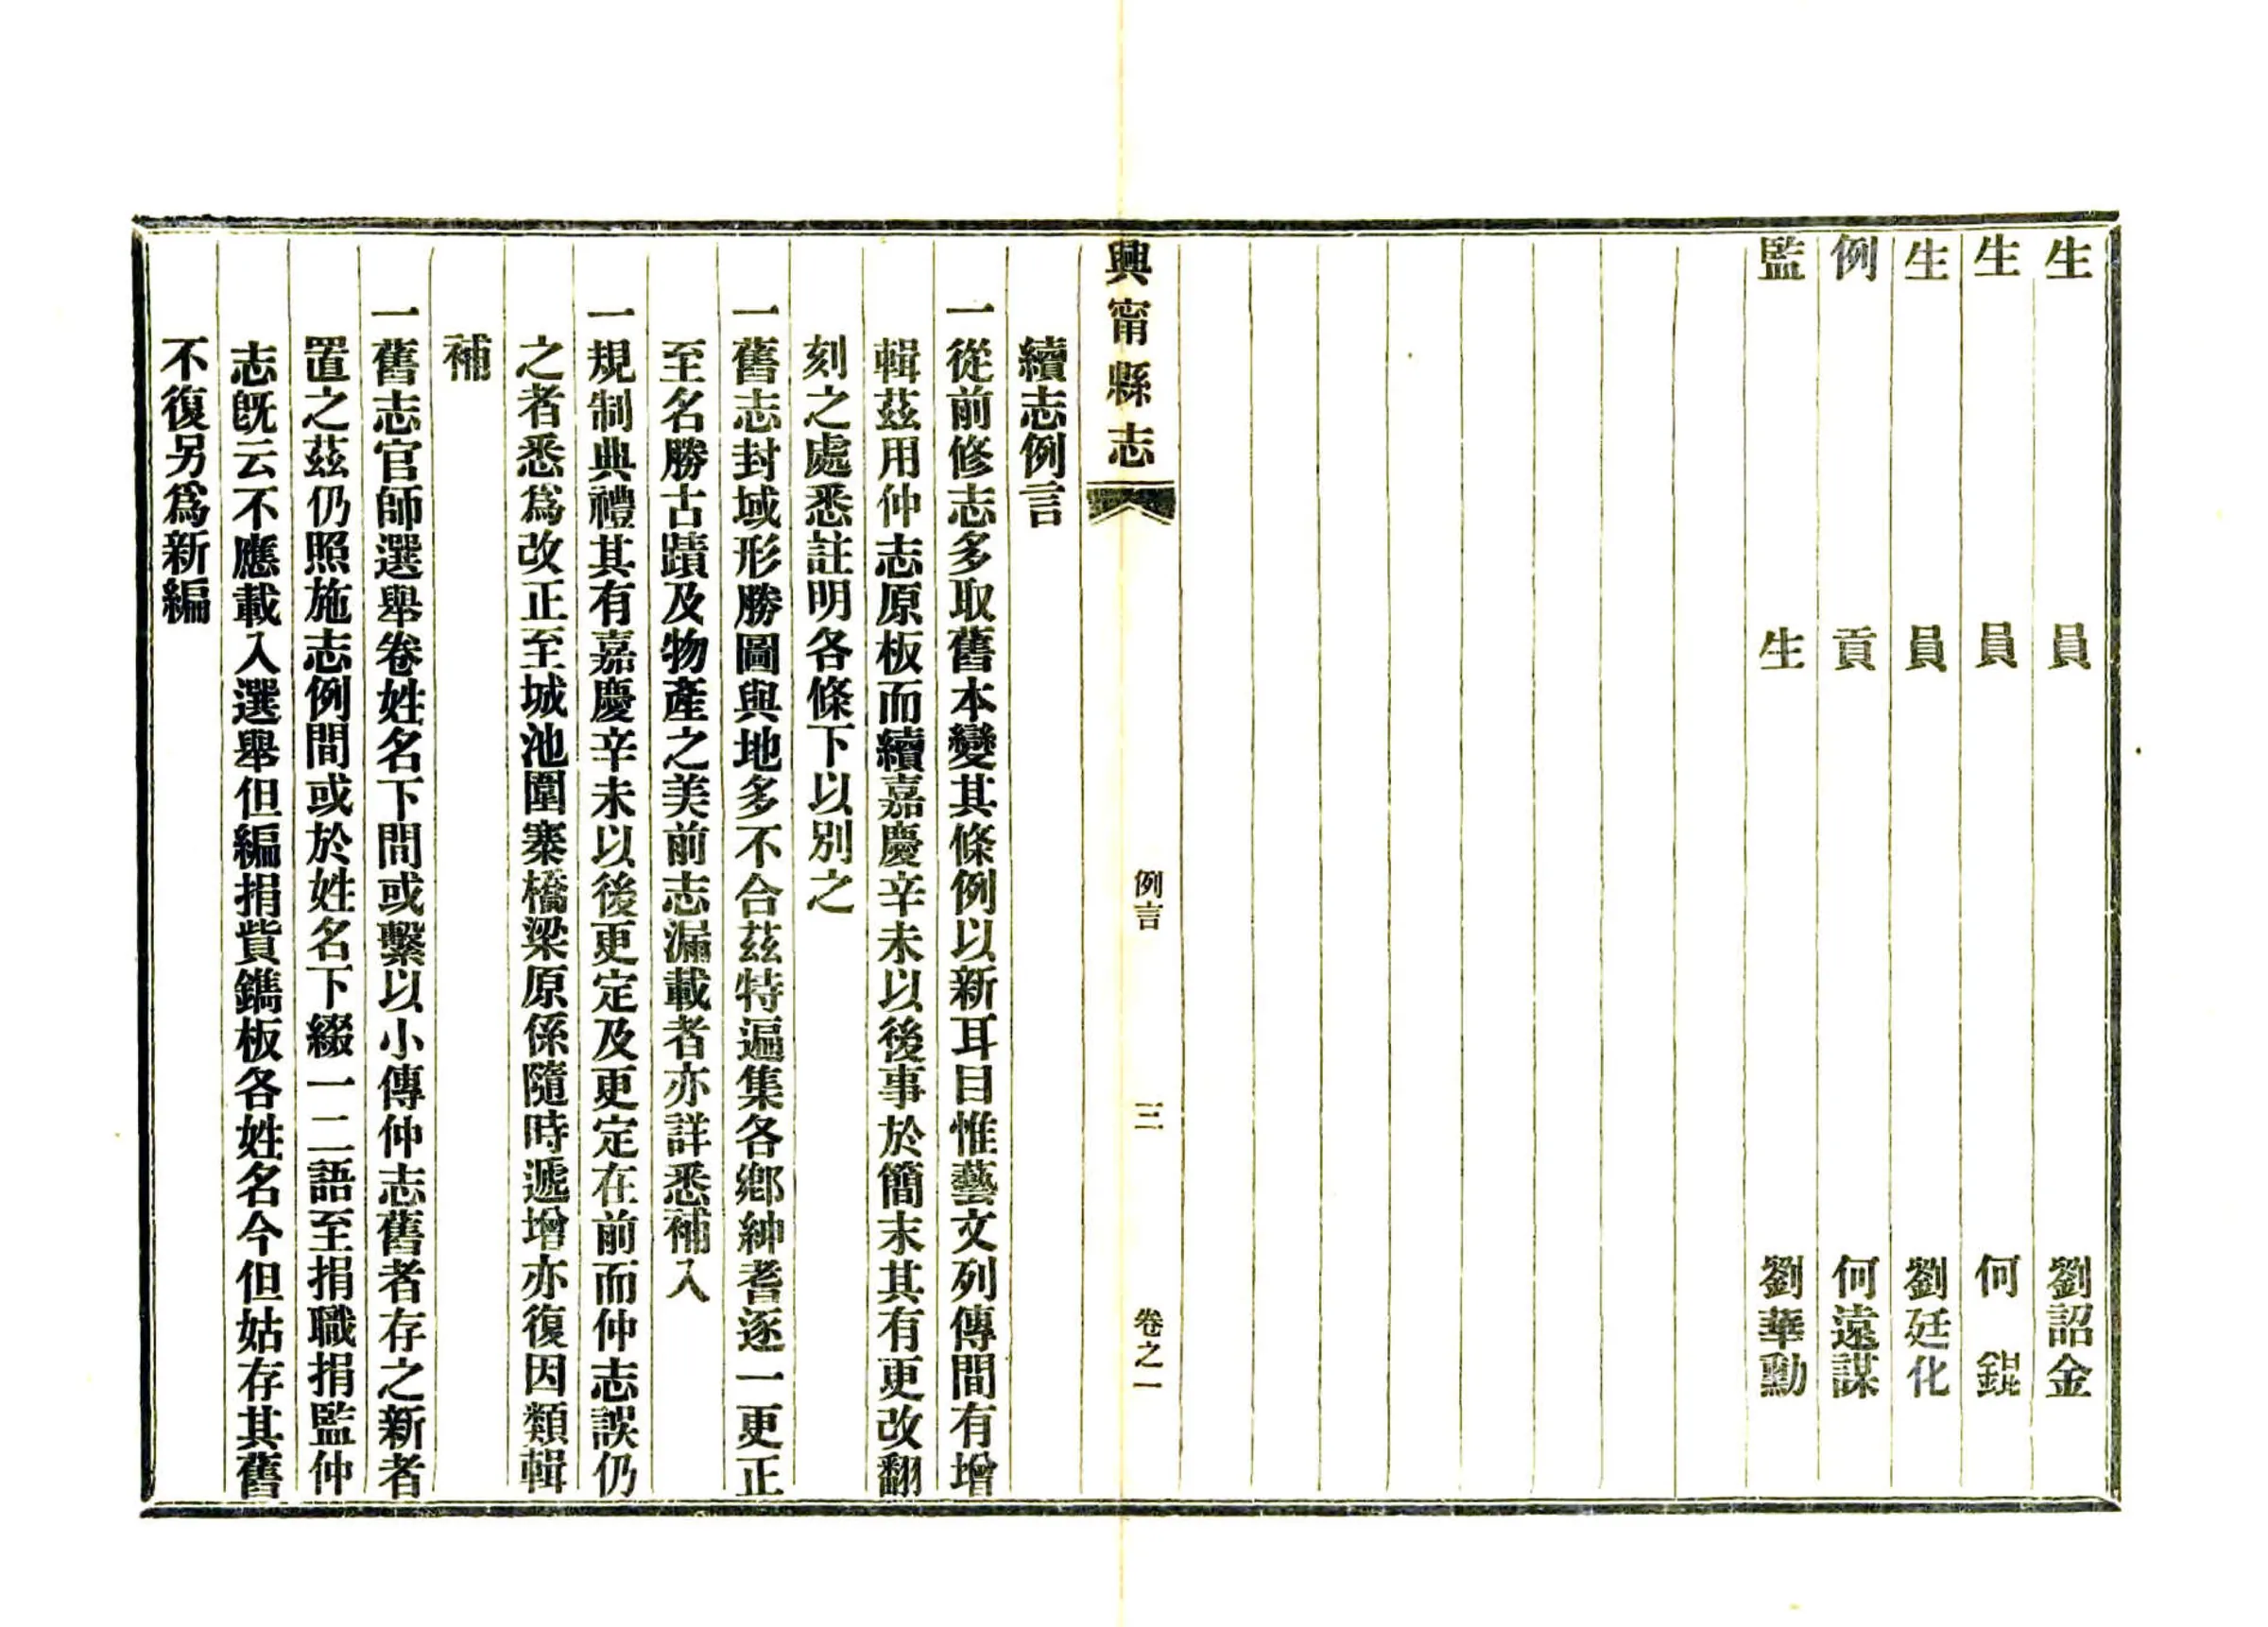 生員劉詔金
生員何錕
生員劉廷化
例貢何遠謀
監生劉華勳
興甯縣志
例言
三
卷之一
續志例言
一從前修志多取舊本變其條例以新耳目惟藝文列傳間有增
輯茲用仲志原板而續嘉慶辛未以後事於簡末其有更改翻
刻之處悉註明各條下以別之
一舊志封域形勝圖與地多不合茲特遍集各鄉紳耆逐一更正
至名勝古蹟及物產之美前志漏載者亦詳悉補入
一規制典禮其有嘉慶辛未以後更定及更定在前而仲志誤仍
之者悉爲改正至城池圍寨橋梁原係隨時遞增亦復因類輯
補
一舊志官師選舉卷姓名下間或繫以小傳仲志舊者存之新者
置之茲仍照施志例間或於姓名下綴一二語至捐職捐監仲
志旣云不應載入選舉但編捐貲鐫板各姓名今但姑存其舊
不復另爲新編